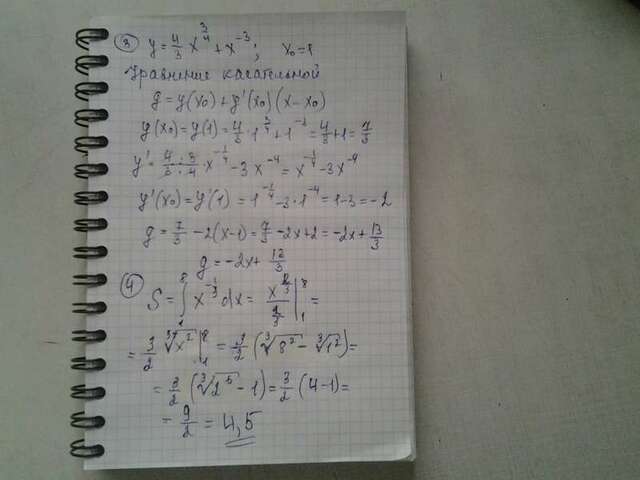 ③ y = 4/3 x^(3/4) + x^(-3); x₀ = 1
Уравнение касательной
y = y(x₀) + y'(x₀)(x - x₀)
y(x₀) = y(1) = 4/3 · 1^(3/4) + 1^(-3) = 4/3 + 1 = 7/3
y' = 4/3 · 3/4 · x^(-1/4) - 3x^(-4) = x^(-1/4) - 3x^(-4)
y'(x₀) = y'(1) = 1^(-1/4) - 3·1^(-4) = 1 - 3 = -2
y = 7/3 - 2(x-1) = 7/3 - 2x + 2 = -2x + 13/3
y = -2x + 13/3
④ S = ∫₁⁸ x^(-1/3) dx = x^(2/3) / (2/3) |₁⁸ =
= 3/2 ∛(x²) |₁⁸ = 3/2 (∛(8²) - ∛(1²)) =
= 3/2 (∛(2⁶) - 1) = 3/2 (4 - 1) =
= 9/2 = 4,5